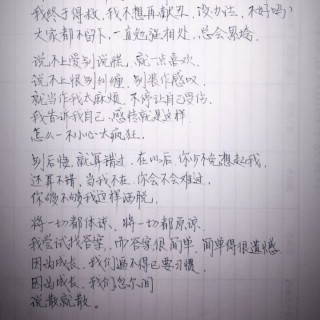 我终于得救,我不想再献丑,没办法,不好吗?
大家都不留下,一直勉强相处,总会累垮
说不上爱别说谎,就一点喜欢
说不上恨别纠缠,别装作感叹
就当作我太麻烦,不停让自己受伤
我告诉我自己,感情就是这样
怎么一不小心太疯狂.
别后悔,就算错过,在以后,你少不免想起我,
还算不错,当我不在,你会不会难过,
你够不够我这样洒脱,
将一切都体谅、将一切都原谅,
我尝试找答案,而答案很简单,简单得很遗憾
因为成长,我们逼不得已要习惯
因为成长,我们忽尔间
说散就散。